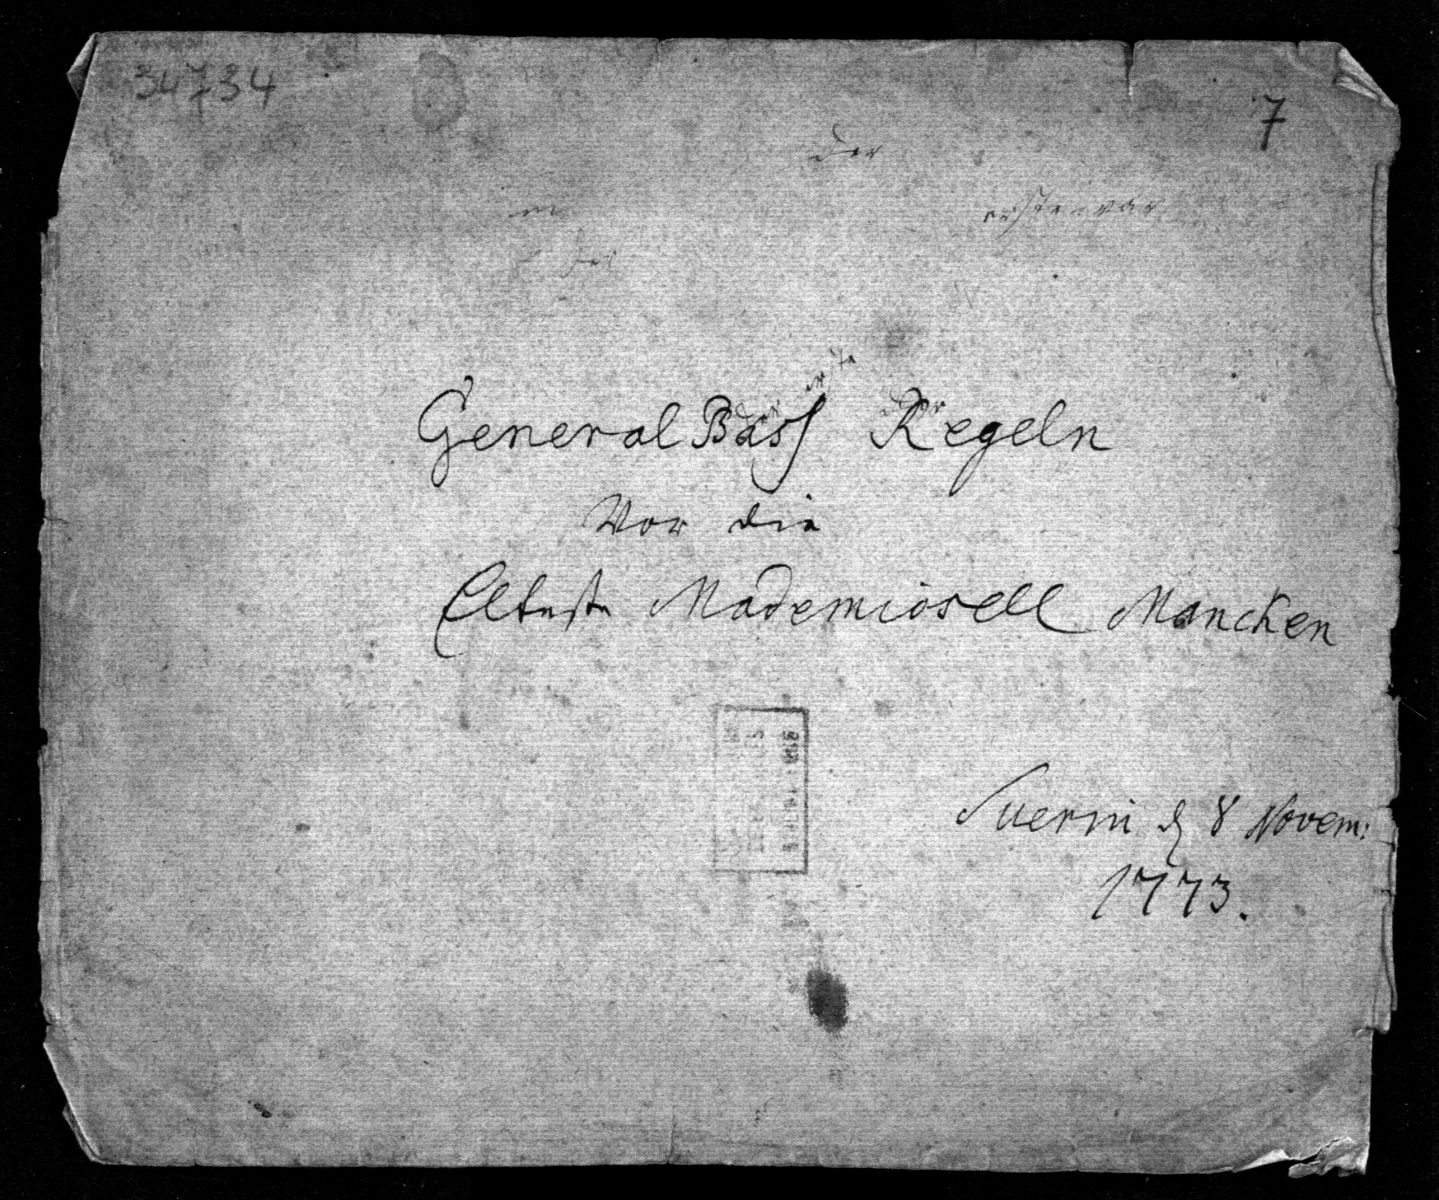 34734
7
der
erste war
General Bass Regeln
Vor die
Elteste Mademiosell Mancken
Suerin d 8 Novem:
1773.